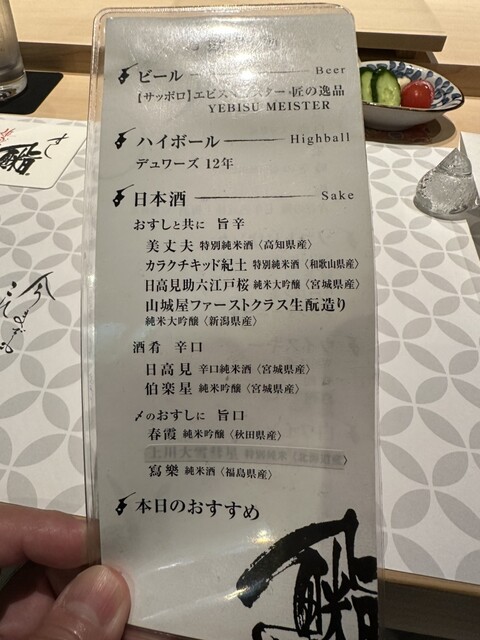 ビール Beer
【サッポロ】エビスマイスター 匠の逸品
YEBISU MEISTER
ハイボール Highball
デュワーズ 12年
日本酒 Sake
おすしと共に 旨辛
美丈夫 特別純米酒〈高知県産〉
カラクチキッド紀土 特別純米酒〈和歌山県産〉
日高見助六江戸桜 純米大吟醸〈宮城県産〉
山城屋ファーストクラス生酛造り
純米大吟醸〈新潟県産〉
酒肴 辛口
日高見 辛口純米酒〈宮城県産〉
伯楽星 純米吟醸〈宮城県産〉
〆のおすしに 旨口
春霞 純米吟醸〈秋田県産〉
上川大雪彗星 特別純米〈北海道産〉
寫樂 純米酒〈福島県産〉
本日のおすすめ